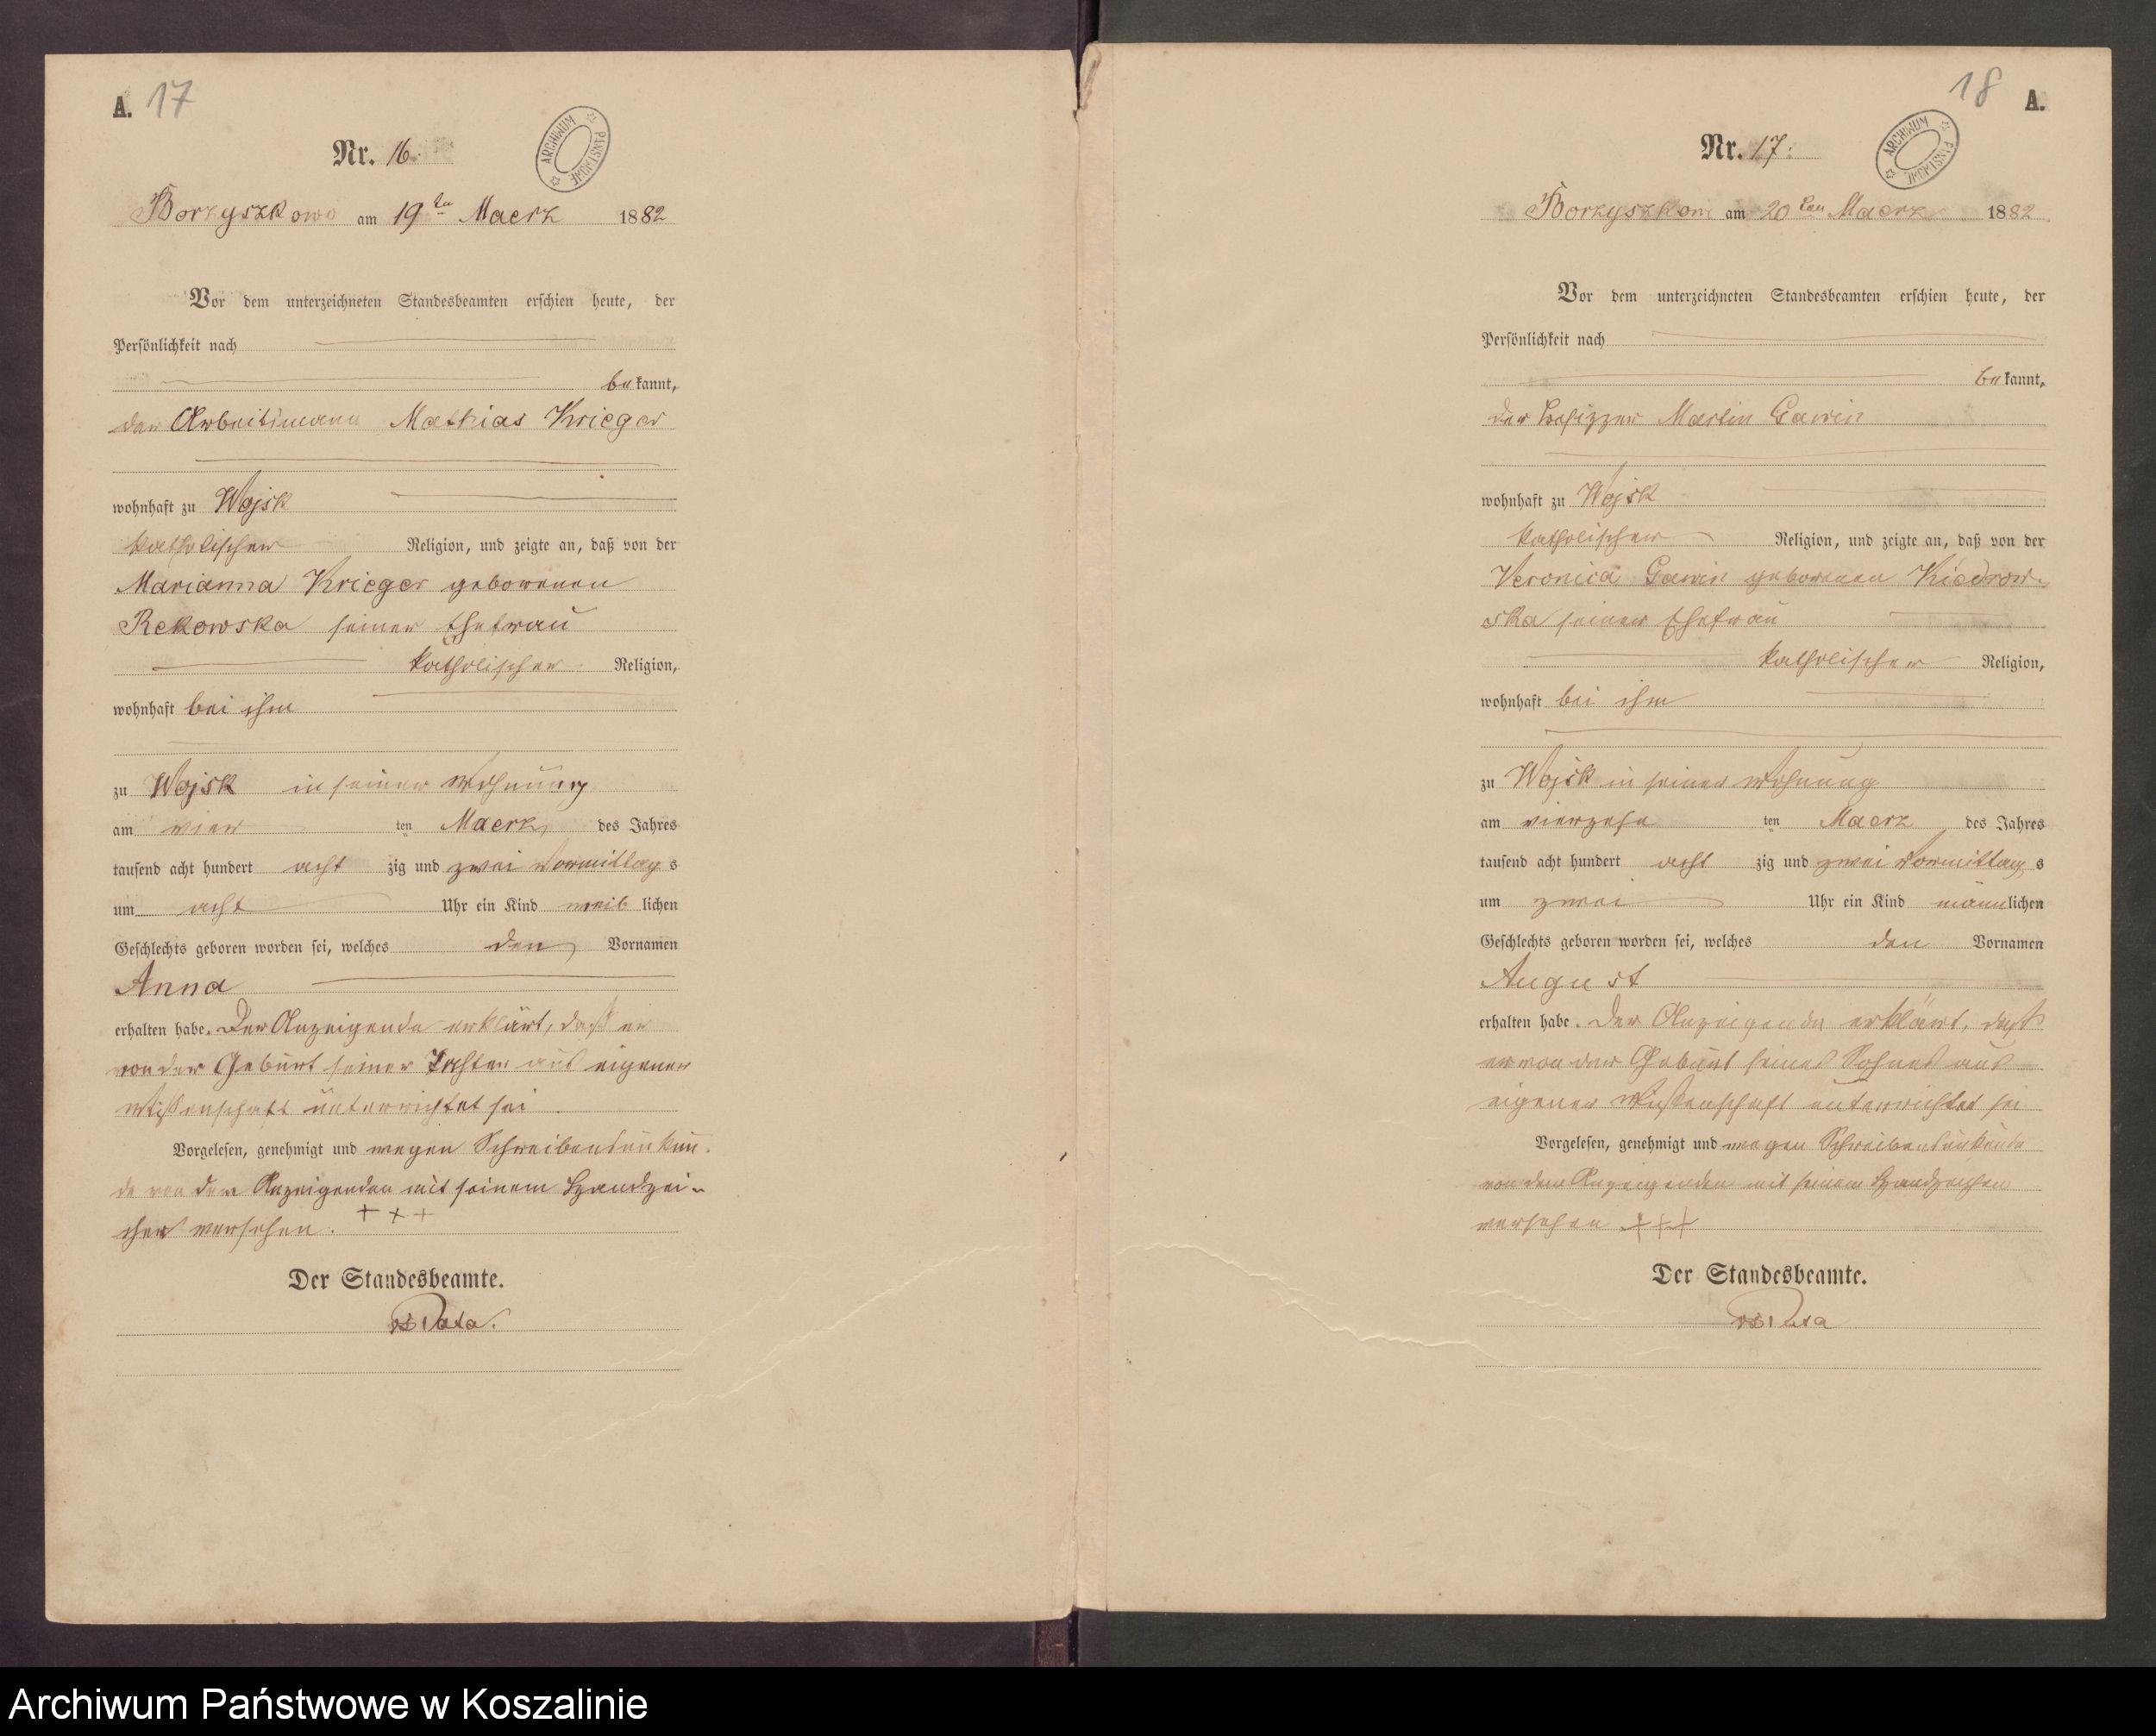 A. 17
Nr. 16.
ARCHIWUM PAŃSTWOWE
Borzyszkowo am 19ten Maerz 1882
Vor dem unterzeichneten Standesbeamten erschien heute, der
Persönlichkeit nach
bekannt,
der Arbeitsmann Mathias Krieger
wohnhaft zu Wojsk
katholischer Religion, und zeigte an, daß von der
Marianna Krieger geborenen
Rekowska seiner Ehefrau
katholischer Religion,
wohnhaft bei ihm
zu Wojsk in seiner Wohnung
am vier ten Maerz des Jahres
tausend acht hundert acht zig und zwei Vormittag s
um acht Uhr ein Kind weib lichen
Geschlechts geboren worden sei, welches den Vornamen
Anna
erhalten habe. Der Anzeigende erklärt, daß er
von der Geburt seiner Tochter aus eigener
Wißenschaft unterrichtet sei
Vorgelesen, genehmigt und wegen Schreibensunkun-
de von dem Anzeigenden mit seinem Handzei-
chen versehen. + + +
Der Standesbeamte.
18 A.
Nr. 17.
ARCHIWUM PAŃSTWOWE
Borzyszkowo am 20ten Maerz 1882
Vor dem unterzeichneten Standesbeamten erschien heute, der
Persönlichkeit nach
bekannt,
der Besitzer Martin Gawin
wohnhaft zu Wojsk
katholischer Religion, und zeigte an, daß von der
Veronica Gawin geborenen Kiedrow-
ska seiner Ehefrau
katholischer Religion,
wohnhaft bei ihm
zu Wojsk in seiner Wohnung
am vierzehn ten Maerz des Jahres
tausend acht hundert acht zig und zwei Vormittag s
um zwei Uhr ein Kind männlichen
Geschlechts geboren worden sei, welches den Vornamen
August
erhalten habe. Der Anzeigende erklärt, daß
er von der Geburt seines Sohnes aus
eigener Wißenschaft unterrichtet sei
Vorgelesen, genehmigt und wegen Schreibensunkunde
von dem Anzeigenden mit seinem Handzeichen
versehen +++
Der Standesbeamte.
Archiwum Państwowe w Koszalinie